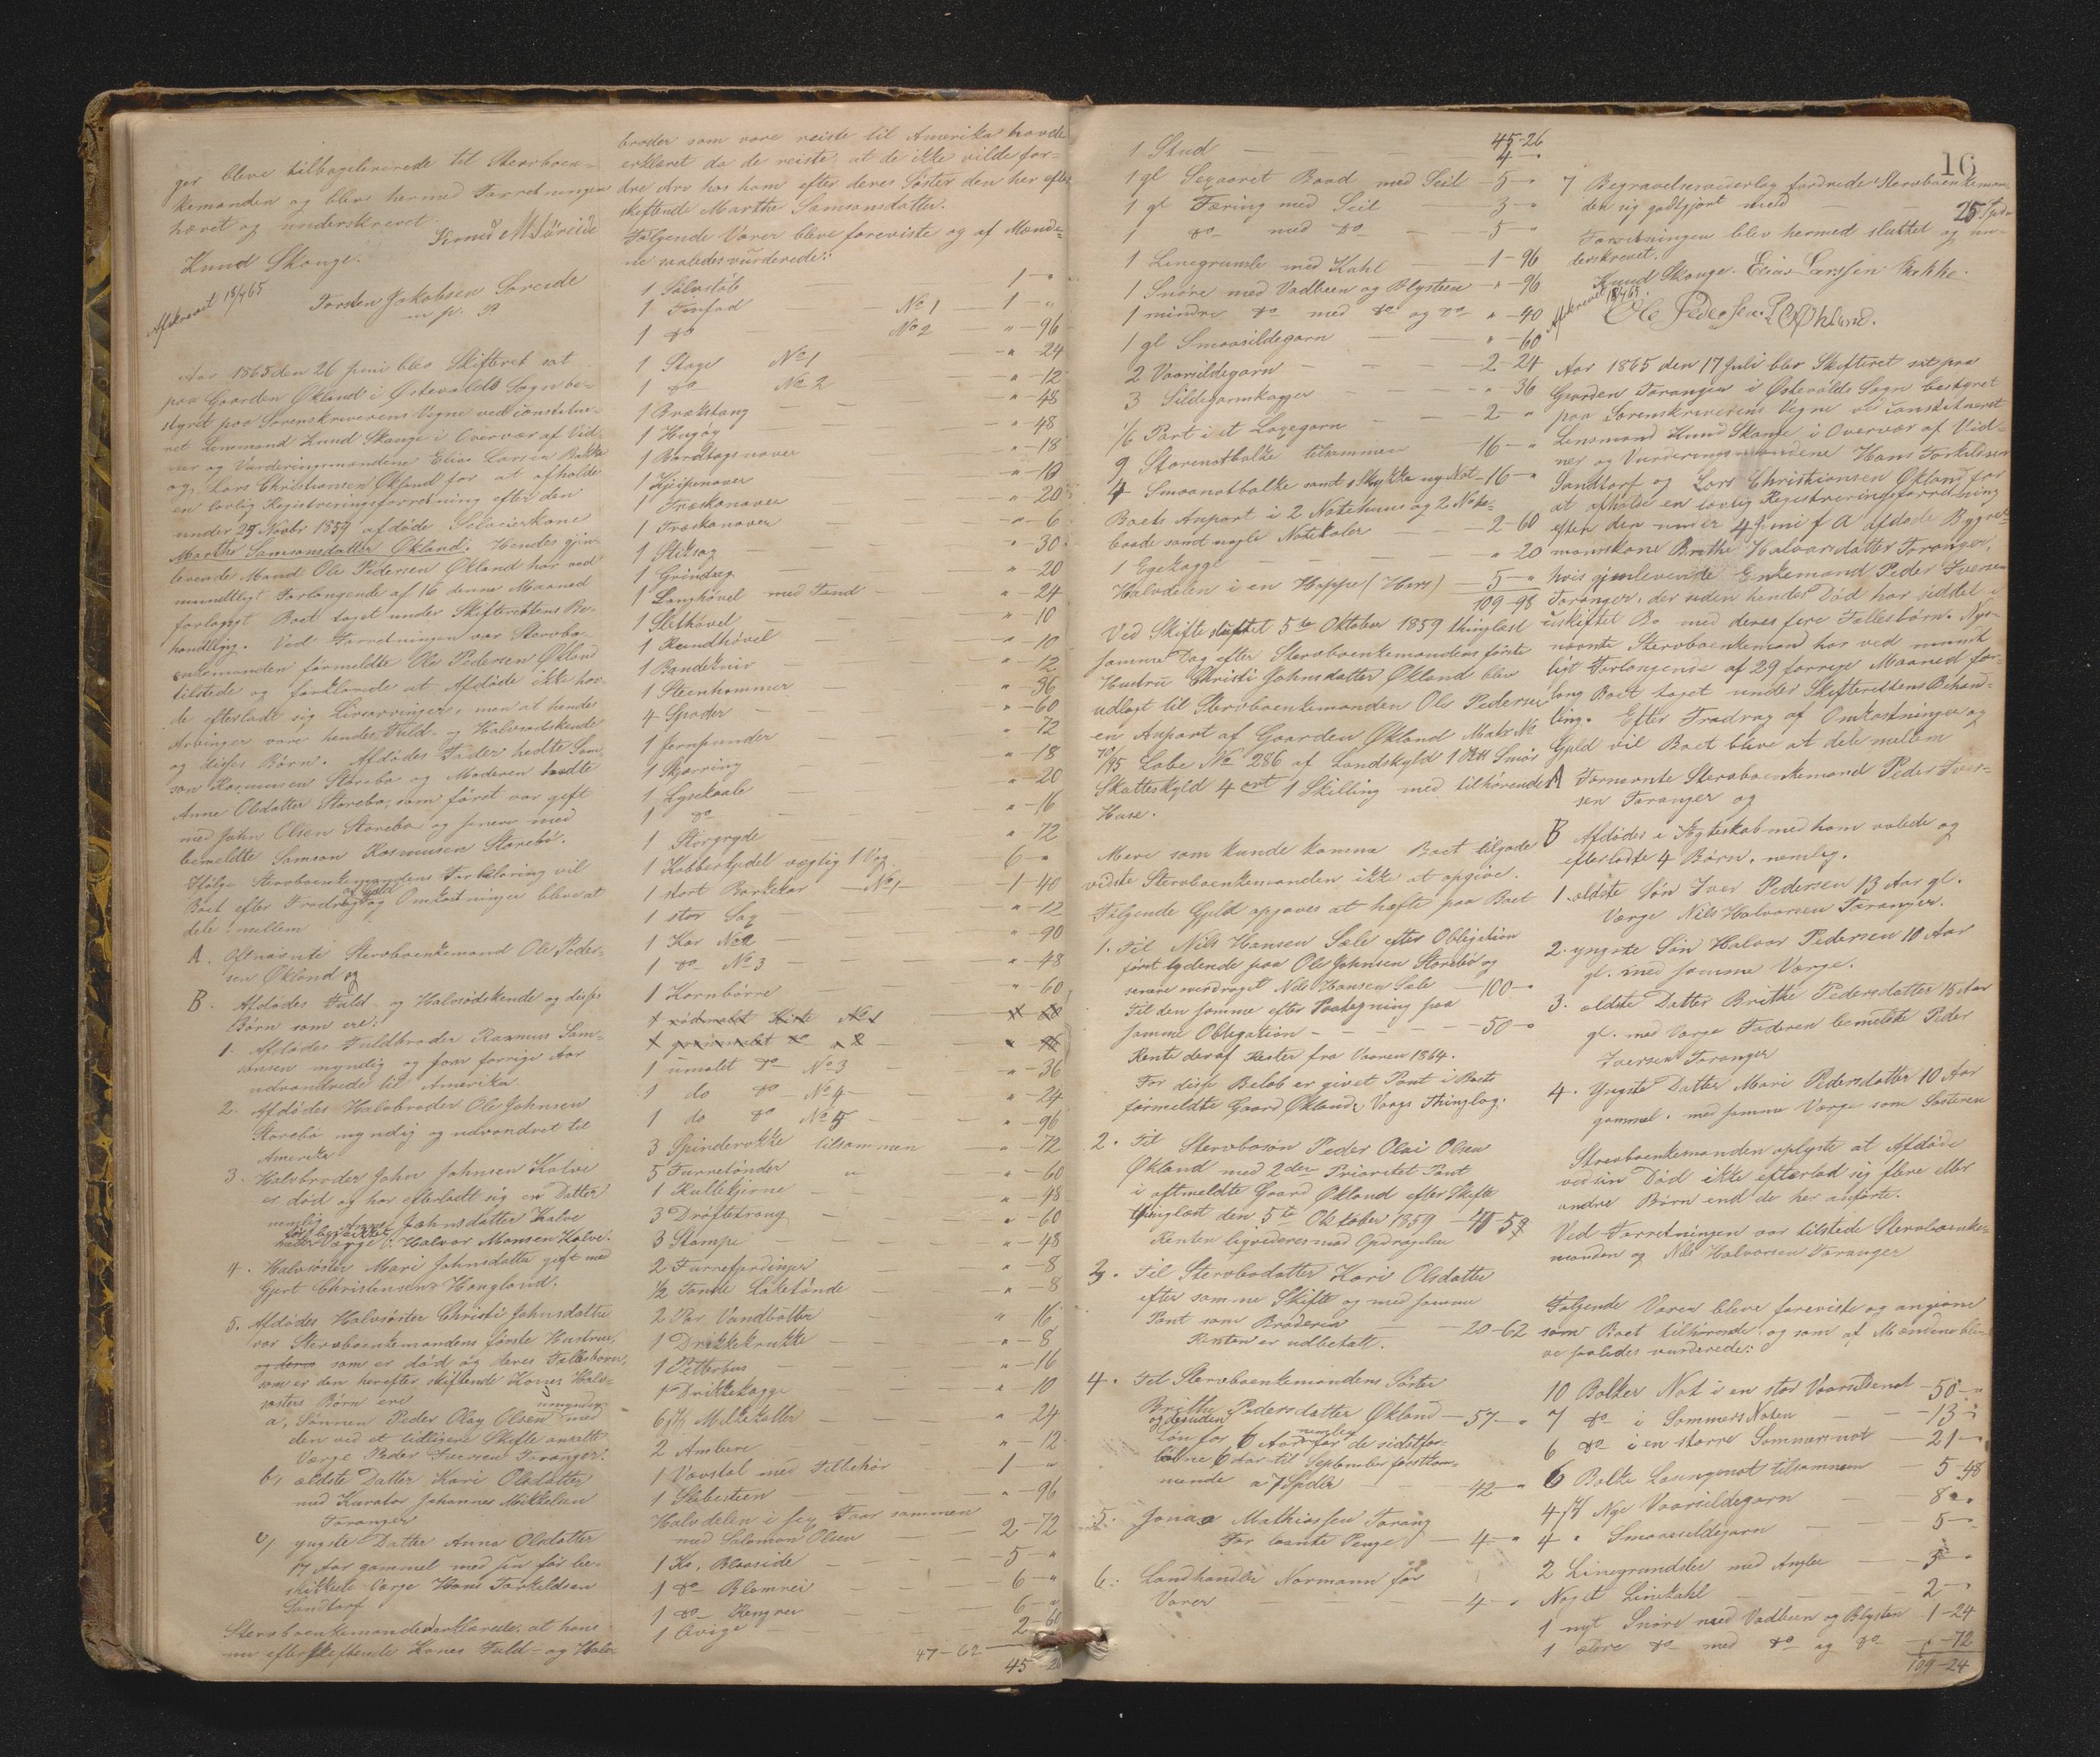 ger bleve tilbageleverede til Stervboen-
kemanden og blev hermed Forretningen
hævet og underskrevet.
Knud Skauge.
Torsten Jakobsen Søreide
m. p. P
Afskrevet 18/4 65
Aar 1865 den 26 juni blev Skifteret sat
paa Gaarden Økland i Østevolds Sogn be-
styret paa Sorenskriverens Vegne ved constitue-
ret Lensmand Knud Skauge i Overvær af Vid-
ner og Vurderingsmændene Elias Larsen Bakke
og Lars Christiansen Økland for at afholde
en lovlig Registreringsforretning efter den
under 25 Novbr 1859 afdøde Selveierkone
Marthe Samsonsdatter Økland. Hendes gjen-
levende Mand Ole Pedersen Økland har ved
mundtligt Forlangende af 16 denne Maaned
forlangt Boet taget under Skifterettens Be-
handling. Ved Forretningen var Stervbo-
enkemanden formeldte Ole Pedersen Økland
tilstede og forklarede at Afdøde ikke hav-
de efterladt sig Livsarvinger, men at hendes
Arvinger vare hendes Fuld- og Halvsødskende
og disses Børn. Afdødes Fader hedte Sam-
son Rasmusen Storebø og Moderen hedte
Anne Olsdatter Storebø, som først var gift
med John Olsen Storebø og senere med
bemeldte Samson Rasmusen Storebø.
Ifølge Stervboenkemandens Forklaring vil
Boet efter Fradrag af Gjæld og Omkostninger blive at
dele mellem
A. Oftnævnte Stervboenkemand Ole Peder-
sen Økland og
B. Afdødes Fuld- og Halvsødskende og disses
Børn som ere:
1. Afdødes Fuldbroder Rasmus Sam-
sonsen myndig og som forrige Aar
udvandrede til Amerika.
2. Afdødes Halvbroder Ole Johnsen
Storebø myndig og udvandret til
Amerika
3. Halvbroder John Johnsen Kalve
er død og har efterladt sig en Datter
nemlig Anne Johnsdatter Kalve
Værge: Halvor Monsen Kalve.
4. Halvsøster Mari Johnsdatter gift med
Gjert Christensen Haugland.
5. Afdødes Halvsøster Christi Johnsdatter
var Stervboenkemandens første Hustrue,
som er død og deres Fællesbørn,
som er den herefter skiftende Kones Halv-
søsters Børn ere
a, Sønnen Peder Olay Olsen umyndig med
den ved et tidligere Skifte ansatte
Værge Peder Iversen Toranger.
b, ældste Datter Kari Olsdatter
med Kurator Johannes Mikkelsen
Toranger
c, yngste Datter Anna Olsdatter
17 Aar gammel med sin før be-
skikkede Værge Hans Torkildsen
Sandtorf.
Stervboenkemanden erklærede, at hans
nu efterskiftende Kones Fuld- og Halv-
brødre som vare reiste til Amerika havde
erklæret da de reiste, at de ikke vilde for-
dre Arv hos ham efter deres Søster den her efter
skiftende Marthe Samsonsdatter.
Følgende Varer bleve foreviste og af Mænde-
ne saaledes vurderede:
1 Sølvstøb 1 - "
1 Tinfad No 1 1 - "
1 do No 2 " - 96
1 Stage No 1 " - 24
1 do No 2 " - 12
1 Brækstang " - 48
1 Hugøx " - 48
1 Bordtagsnaver " - 18
1 Kjeipenaver " - 10
1 Træskonaver " - 20
1 Træskonaver " - 6
1 Stiksag " - 30
1 Grindsag " - 20
1 Langhøvel med Tand " - 24
1 Sletthøvel " - 10
1 Rundhøvel " - 10
1 Bandekniv " - 12
1 Steenhammer " - 36
4 Spader " - 60
1 Jernpunder " - 72
1 Skjærring " - 18
1 Lysekaale " - 20
1 do " - 16
1 Storgryde " - 72
1 Kobberkjedel vægtig 1 Vog 6 - "
1 stort Barkekar No 1 1 - 40
1 stor Sag " - 12
1 Kar No 2 " - 90
1 do No 3 " - 48
1 Kornbørre " - 60
1 rødmalet Kiste No 1
1 grønmalet do " 2
1 umalet do No 3 " - 36
1 do do No 4 " - 24
1 do do No 5 " - 96
3 Spinderokke tilsammen " - 72
5 Furretønder " " - 60
1 Rullekjerne " - 48
3 Drøftetraug " - 60
3 Stampe " - 48
2 Furrefjerdinger " - 8
1/2 Tønde Laketønde " - 8
2 Par Vandbøtter " 16
1 Drikkekrukke " - 8
1 Petterbus " - 16
1 Drikkekagge " - 10
6 Melkekoller " 24
2 Ambere " - 12
1 Vævstol med Tilbehør 1 - "
1 Slibesteen " - 96
Halvdelen i sex Faar sammen
med Salamon Olsen 2 - 72
1 Ko, Blaaside 5 - "
1 do Blomrei 6 - "
1 do Rengrei 6 - "
1 Qvige 2 - 60
47 - 62
45 - 26
16
45-26
1 Stud 4 - "
1 gl Sexaaret Baad med Seil 5 - "
1 gl Færing med Seil 3 - "
1 do med do 5 - "
1 Linegrunsle med Kahl 1 - 96
1 Snøre med Vadbeen og Blysteen " - 96
1 mindre do med do og do " - 40
1 gl Smaasildegarn " - 60
2 Vaarsildegarn 2 - 24
3 Sildegarnskagger " - 36
1/6 Part i et Laxegarn 2 - "
9 Storenotbolke tilsammen 16 - "
4 Smaanotbolke samt 1 Stykke ny Not 16 - "
Boets Anpart i 2 Notehuus og 2 Note-
baade samt nogle Notekaler 2 - 60
1 Egekagge " 20
Halvdelen i en Hoppe (Hors) 5 - "
109 - 98
Ved Skifte sluttet 5te Oktober 1859 thinglæst
samme Dag efter Stervboenkemandens første
Hustrue Christi Johnsdatter Økland blev
udlagt til Stervboenkemanden Ole Pedersen
en Anpart af Gaarden Økland Matr No
70/95 Løbe No 286 af Landskyld 1 Smør
Skatteskyld 4 ort 1 Skilling med tilhørende
Huse.
Mere som kunde komme Boet tilgode
vidste Stervboenkemanden ikke at opgive.
Følgende Gjæld opgaves at hæfte paa Boet
1. til Nils Hansen Sæle efter Obligation
først lydende paa Ole Johnsen Storebø og
senere overdraget Nils Hansen Sæle 100 - "
Til den samme efter Paategning paa
samme Obligation 50 - "
Rente deraf rester fra Vaaren 1864.
For disse Beløb er givet Pant i Boets
førmeldte Gaard Økland, Vaags Thinglag.
2. Til Stervbosøn Peder Olai Olsen
Økland med 2den Prioritet Pant
i oftmeldte Gaard Økland efter Skifte
thinglæst den 5te Oktober 1859
Renten liqvideres mod Opdragelse
3. Til Stervbodatter Kari Olsdatter
efter samme Skifte og med samme
Pant som Broderen 20 - 62
Renten er udbetalt.
4. Til Stervboenkemandens Søster
Brithe Pedersdatter Økland 57 - "
og desuden
Løn for 6 Aar nemlig for de sidstfor-
løbne 6 Aar til September førstkom-
mende a 7 Spdlr 42 - "
5. Jonas Mathiassen Torang
For laante Penge 4 - "
6. Landhandler Normann for
Varer 4 - "
7 Begravelsesvederlag fordrede Stervboenkeman-
den sig godtgjort med 25 Spdr
Forretningen blev hermed sluttet og un-
derskrevet.
Knud Skauge. Elias Larssen Bakke.
Afskrevet 18/4 65.
Ole Pedersen. L C Økland.
Aar 1865 den 17 Juli blev Skifteret sat paa
Gaarden Toranger i Østevolds Sogn bestyret
paa Sorenskriverens Vegne ved constitueret
Lensmand Knud Skauge i Overvær af Vid-
ner og Vurderingsmændene Hans Torkildsen
Sandtorf og Lars Christiansen Økland for
at afholde en lovlig Registreringsforretning
efter den under 4 Juni f A afdøde Bygsel-
mandskone Brithe Halvorsdatter Toranger,
hvis gjenlevende Enkemand Peder Iversen
Toranger, der siden hendes Død har siddet i
uskiftet Bo med deres fire Fællesbørn. Nys-
nævnte Stervboenkemand har ved mundt
ligt Forlangende af 29 forrige Maaned for-
lang Boet taget under Skifterettens Behand-
ling. Efter Fradrag af Omkostninger og
Gjæld vil Boet blive at dele mellem
A Fornævnte Stervboenkemand Peder Iver-
sen Toranger og
B Afdødes i Ægteskab med ham avlede og
efterladte 4 Børn, nemlig.
1 ældste Søn Iver Pedersen 13 Aar gl.
Værge Nils Halvorsen Toranger.
2. yngste Søn Halvor Pedersen 10 Aar
gl. med samme Værge.
3. ældste Datter Brithe Pedersdatter 15 Aar
gl. med Værge Faderen bemeldte Peder
Iversen Toranger
4. Yngste Datter Mari Pedersdatter 10 Aar
gammel. med samme Værge som Søsteren
Stervboenkemanden oplyste at Afdøde
ved sin Død ikke efterlod sig flere eller
andre Børn end de her anførte.
Ved Forretningen var tilstede Stervboenke-
manden og Nils Halvorsen Toranger
Følgende Varer bleve foreviste og angivne
som Boet tilhørende, og som af Mændene ble-
ve saaledes vurderede:
10 Bolker Not i en stor Vaarsildenot 50 - "
7 do i Sommers Noten 13 - "
6 do i en større Sommernot 21 - "
6 Bolke Losungenot tilsammen 5 - 48
4 Nye Vaarsildegarn 8 - "
4 " Smaasildegarn 5 - "
2 Linegrunsler med Angler 3 - "
Noget Linekahl 2 - "
1 nyt Snøre med Vadbeen og Blysten 1 - 24
1 ældre do med do og do " - 72
109 - 24